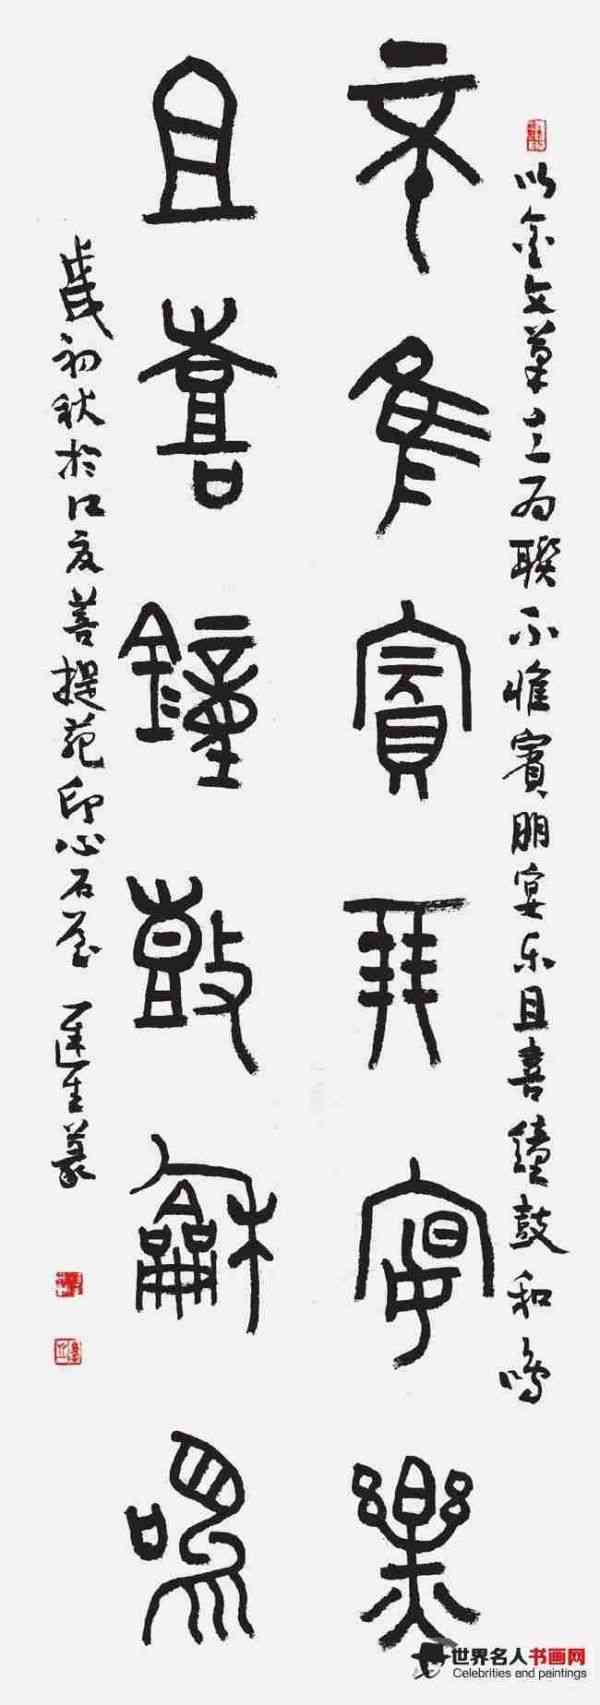 以金文十二为聯不惟賓朋宴乐且喜鐘鼓和鸣
不隹賓朋宴樂
且喜鐘鼓龢鳴
歲初秋於江夏菩提苑印心石屋
世界名人书画网
Celebrities and paintings